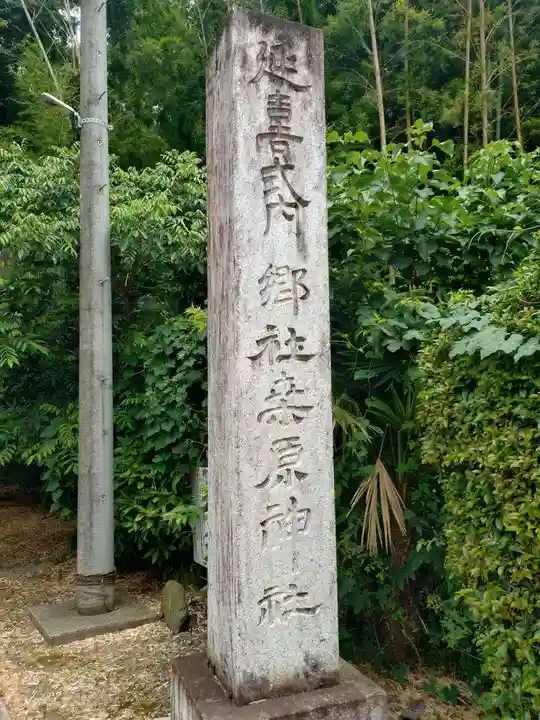 延喜式内郷社桑原神社